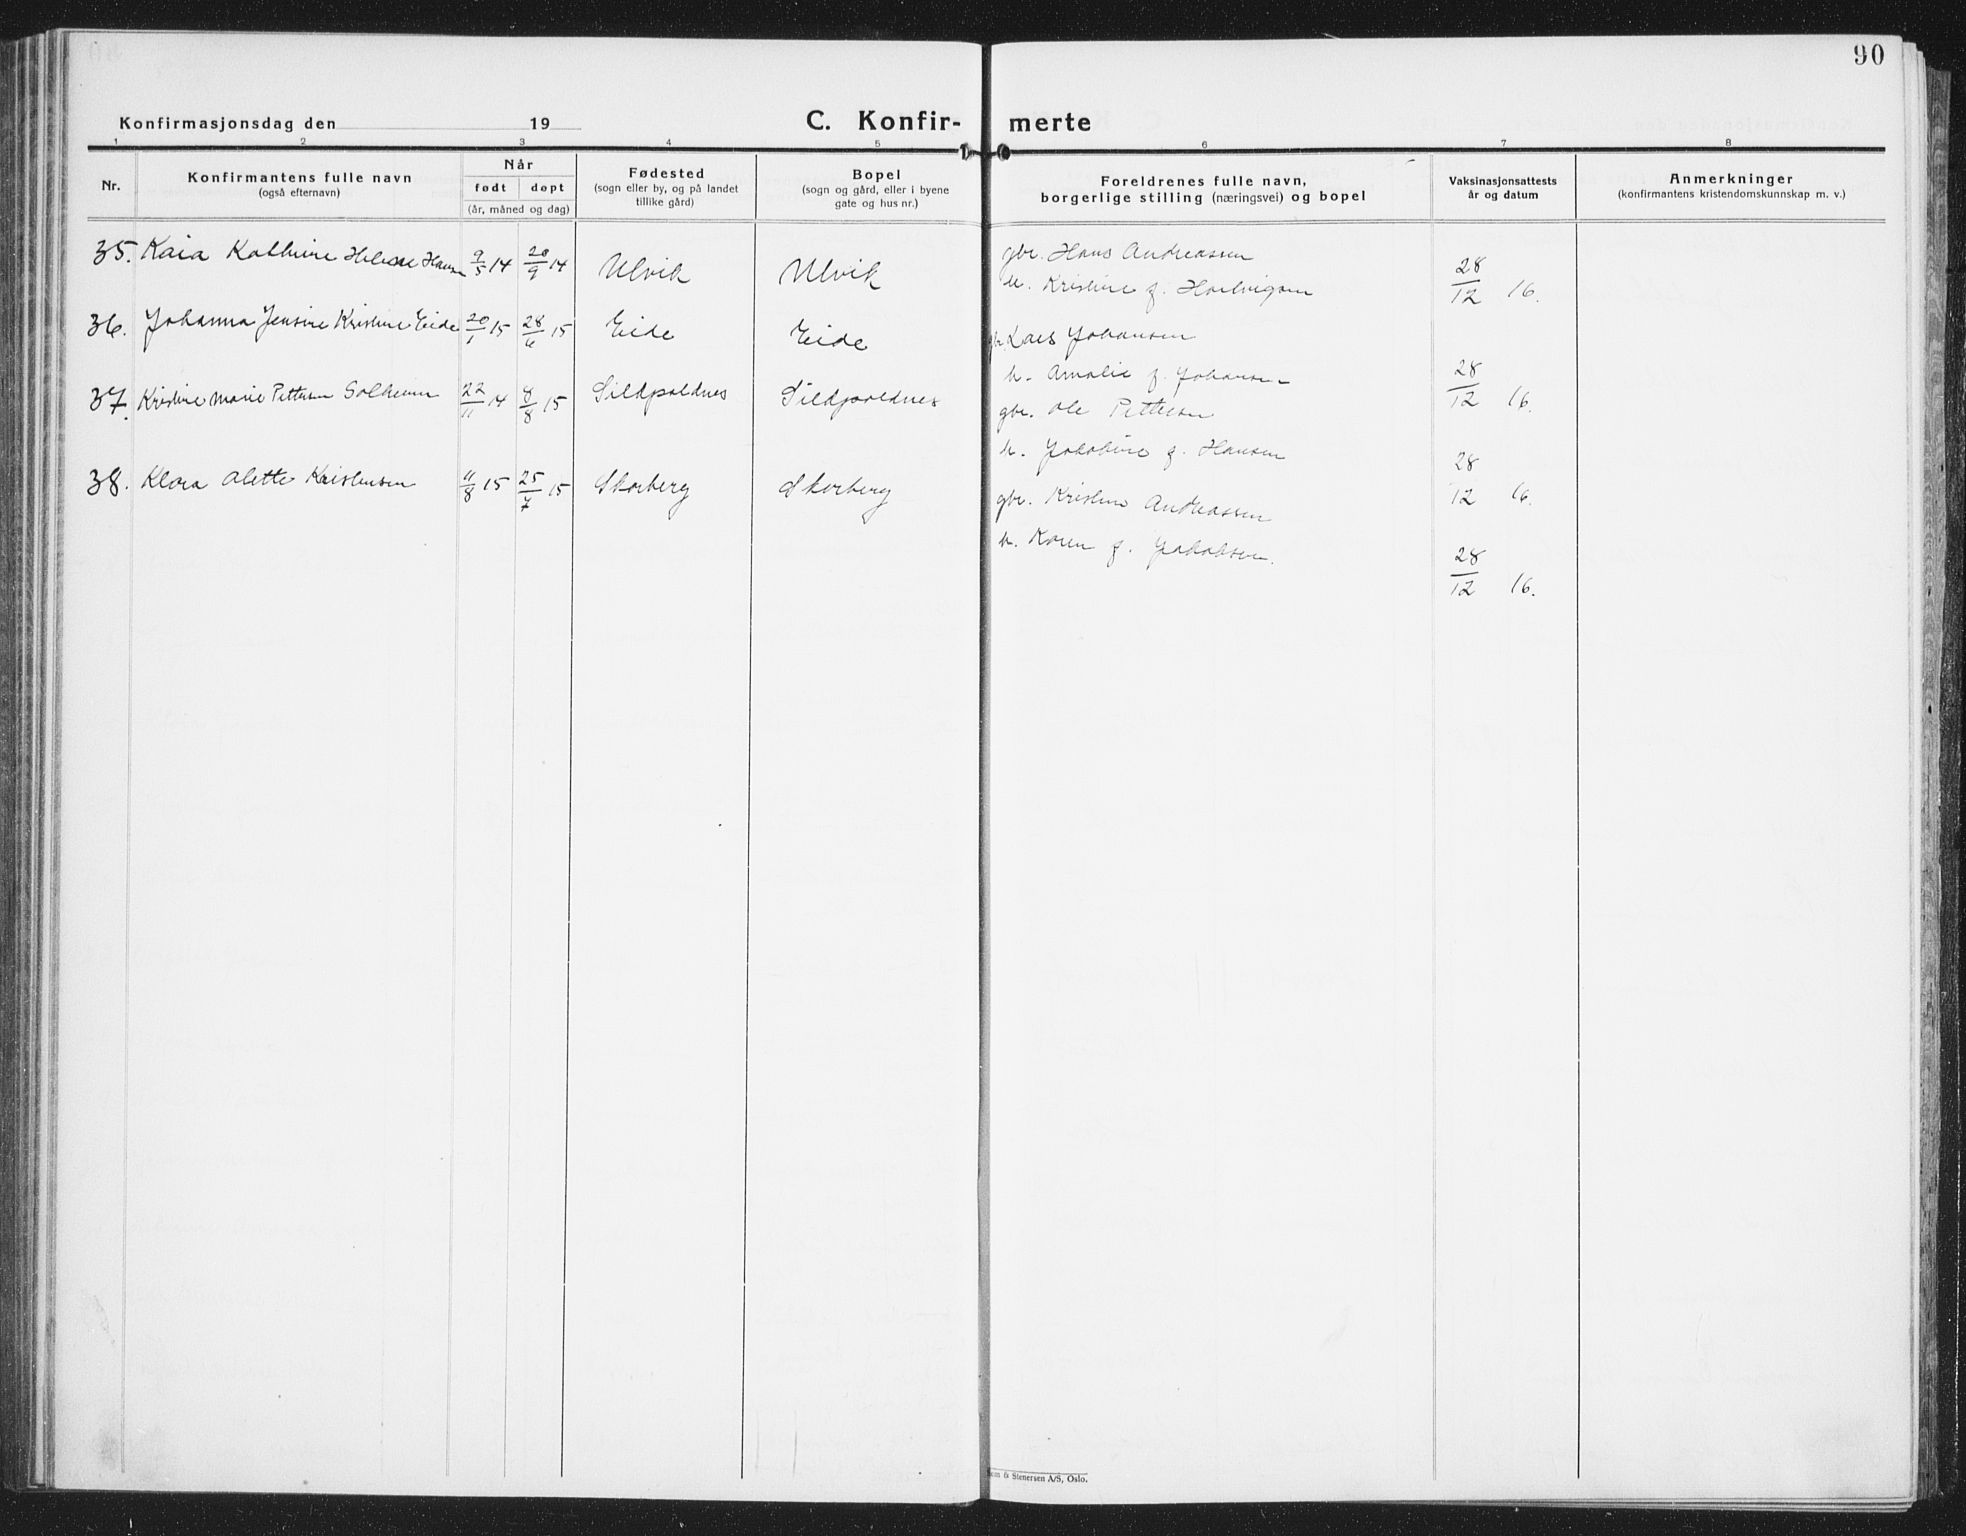 90
Konfirmasjonsdag den 19
C. Konfir- merte
1 2 3 4 5 6 7 8
Nr.
Konfirmantens fulle navn
(også efternavn)
Når
født døpt
(år, måned og dag)
Fødested
(sogn eller by, og på landet
tillike gård)
Bopel
(sogn og gård, eller i byene
gate og hus nr.)
Foreldrenes fulle navn,
borgerlige stilling (næringsvei) og bopel
Vaksinasjonsattests
år og datum
Anmerkninger
(konfirmantens kristendomskunnskap m. v.)
35. Kaia Kathrine Helene Hansen 9/5 14 20/9 14 Ulvik Ulvik gbr. Hans Andreassen
h. Kristine f. Hartvigsen 28/12 16.
36. Johanna Jensine Kristine Eide 20/1 15 28/6 15 Eide Eide gbr. Lars Johansen
h. Amalie f. Johansen 28/12 16.
37. Kristine Marie Pettersen Solheim 22/11 14 8/8 15 Sildpoldnes Sildpoldnes gbr. Ole Pettersen
h. Jakobine f. Hansen 28/12 16.
38. Klara Alette Kristensen 11/8 15 25/7 15 Skorberg Skorberg gbr. Kristen Andreassen
h. Karen f. Jakobsen. 28/12 16.
& Stenersen A/S, Oslo.